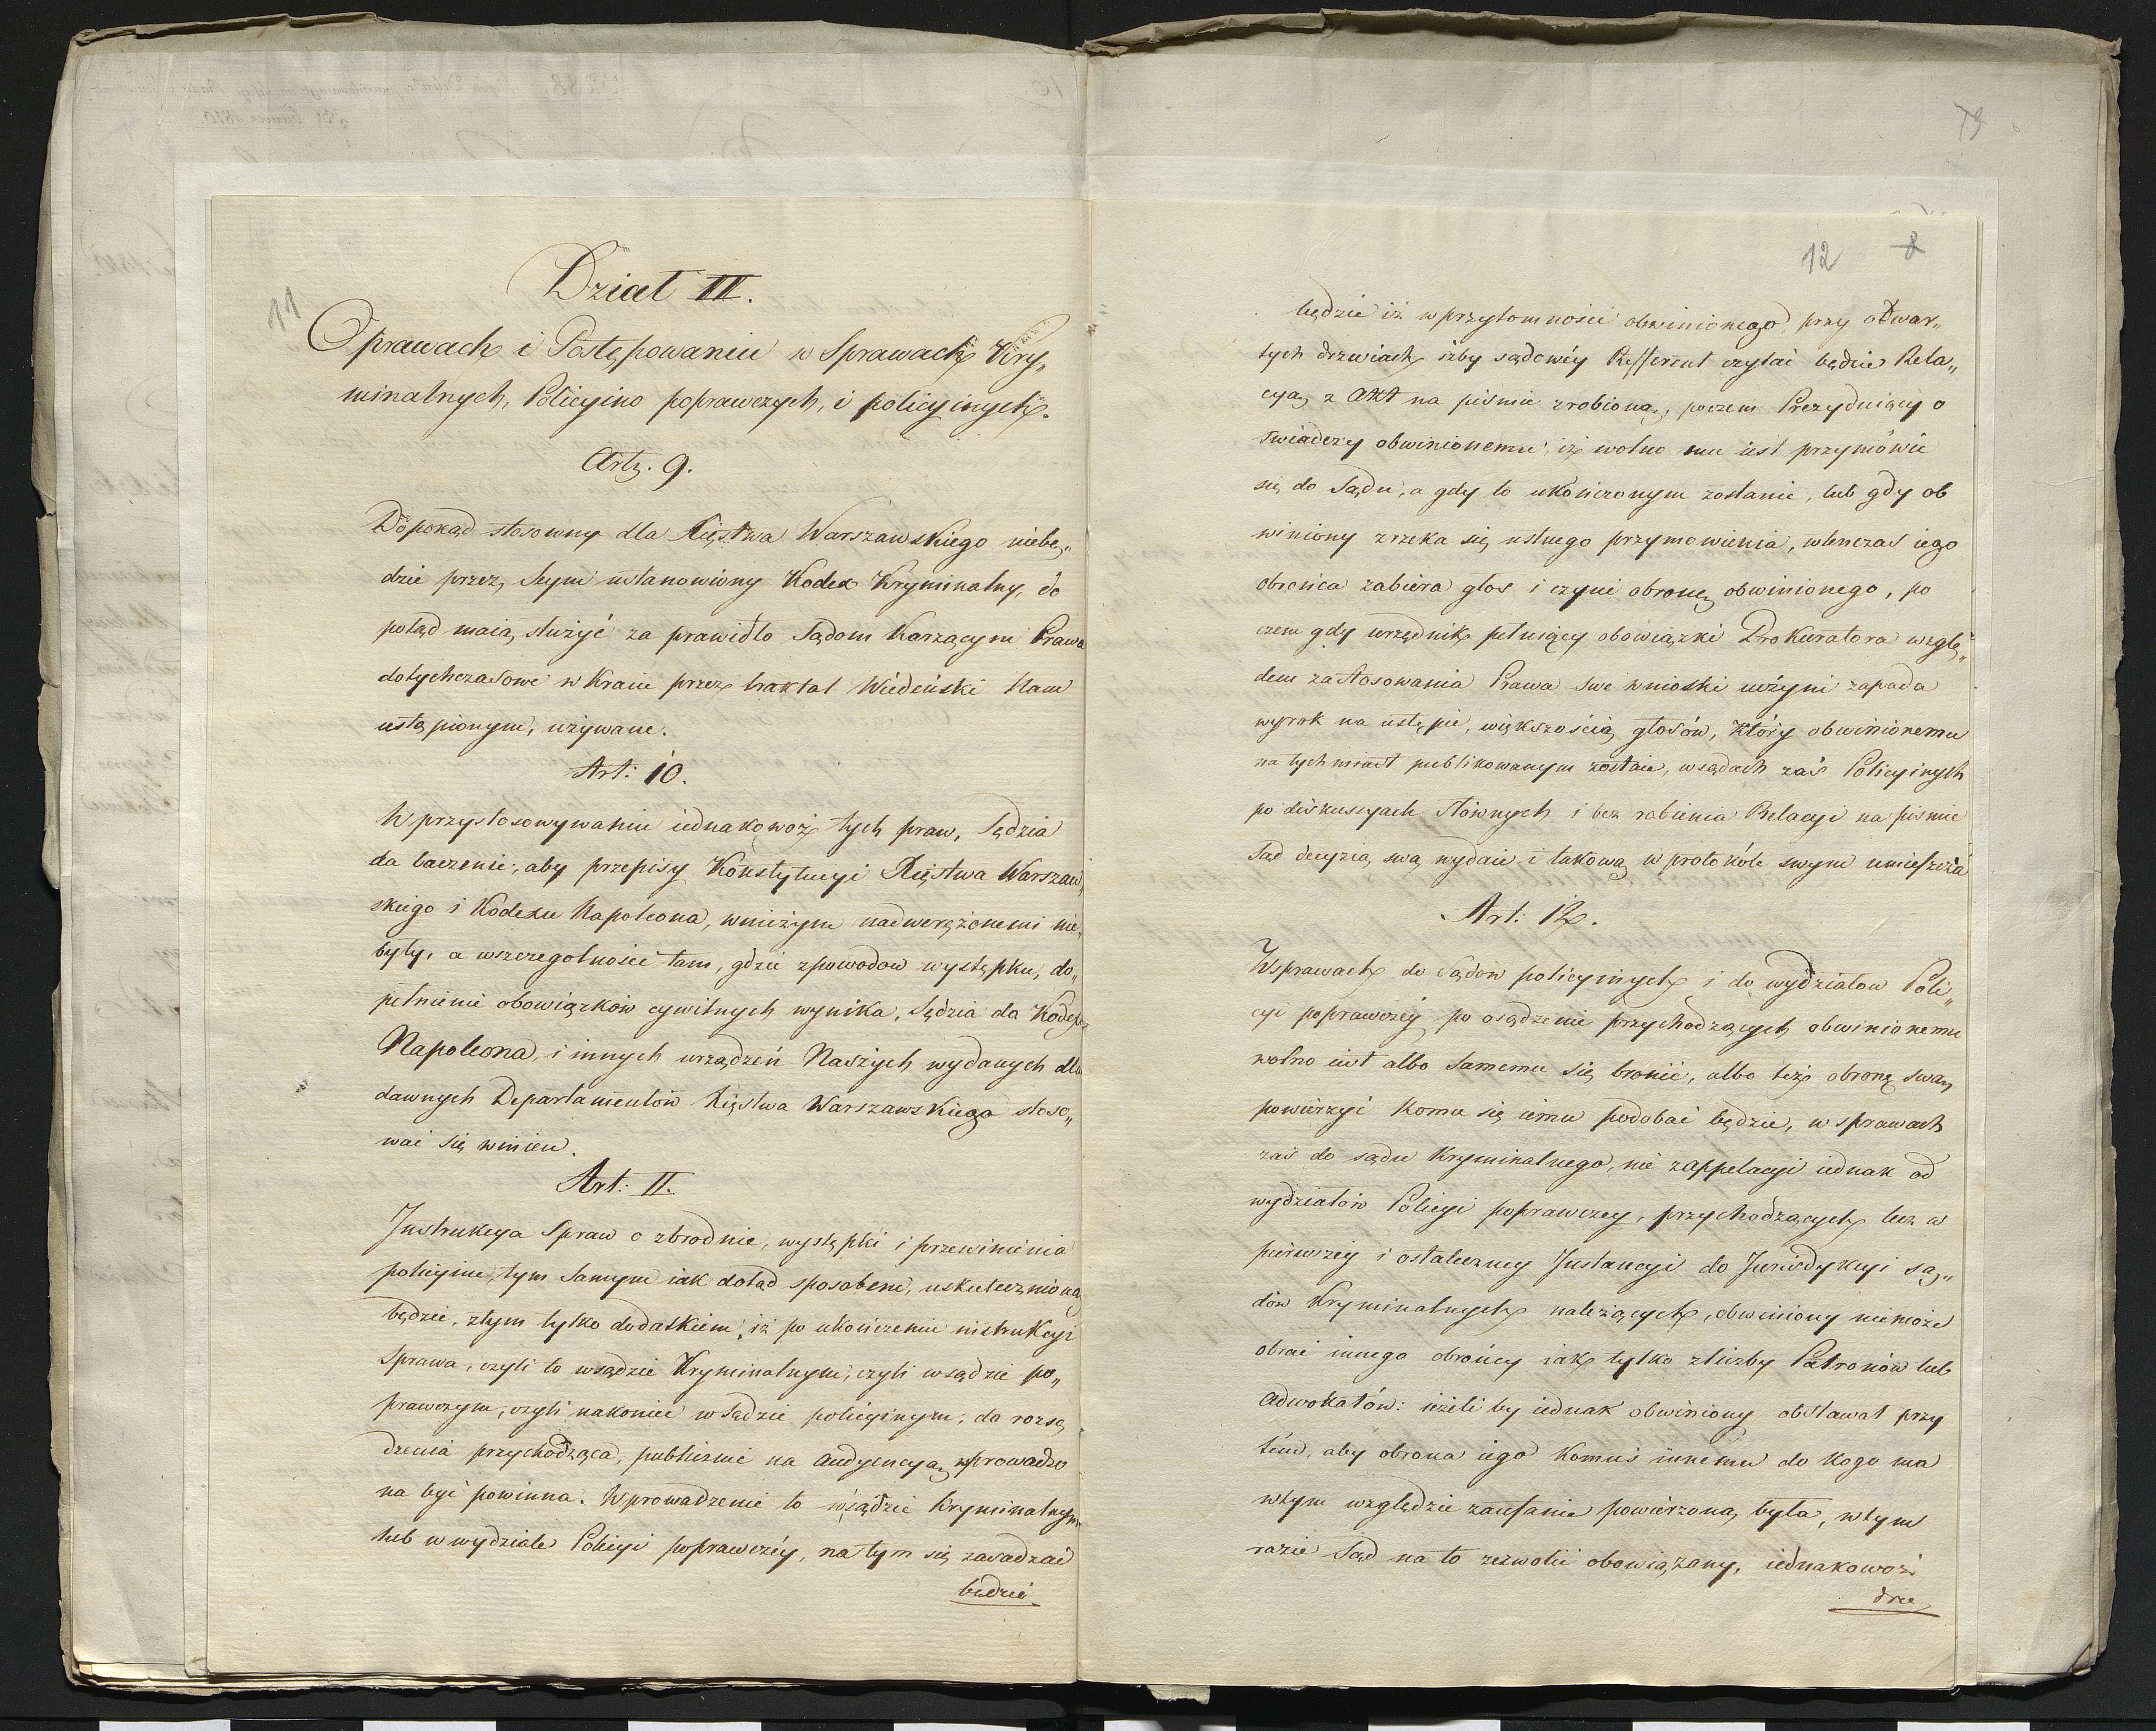 11
Dział III.
O prawach i Postępowaniu w Sprawach Kry„
minalnych, Policyino poprawczych, i policyinych.
Art. 9.
Dopokąd stosowny dla Xięstwa Warszawskiego niebę„
dzie przez Seym ustanowiony Kodex Kryminalny, do
potąd maią służyć za prawidło Sądom Karzącym Prawa
dotychczasowe w Kraiu przez traktat Wiedeński Nam
ustąpionym, używane.
Art: 10.
W przystosowywaniu iednakowoż tych praw, Sędzia
da baczenie, aby przepisy Konstytucyi Xięstwa Warszaw„
skiego i Kodexu Napoleona, wniczym nadwerężonemi nie„
były, a wszczegolności tam, gdzie zpowodow występku, do„
pełnienie obowiązków cywilnych wynika, Sędzia do Kodexu
Napoleona, i innych urządzeń Naszych wydanych dla
dawnych Departamentów Xięstwa Warszawskiego stoso„
wać się winien.
Art: 11.
Instrukcya Spraw o zbrodnie, występki i przewinienia
policyine, tym samym iak dotąd sposobem, uskuteczniona
będzie, ztym tylko dodatkiem, iż po ukończeniu instrukcyi
sprawa, czyli to wsądzie Kryminalnym, czyli wsądzie po„
prawczym, czyli nakoniec w Sądzie policyinym, do rozsą
dzenia przychodząca, publicznie na Audyencyą wprowadzo
na być powinna. Wprowadzenie to wsądzie Kryminalnym
lub w wydziale Policyi poprawczéy, na tym się zasadzać
będzie
79
12 8
będzie iż w przytomności obwinionego, przy otwar„
tych drzwiach izby sądowéy Refferent czytać będzie Rela„
cyą z Akt na piśmie zrobioną, poczem Prezyduiący o
świadczy obwinionemu, iż wolno mu iest przymówić
się do Sądu, a gdy to ukończonym zostanie, lub gdy ob
winiony zrzeka się ustnego przymowienia, wtenczas iego
obrońca zabiera głos i czyni obronę obwinionego, po
czem gdy urzędnik pełniący obowiązki Prokuratora wzglę„
dem zastosowania Prawa swe wnioski uczyni zapada
wyrok na ustępie, większością głosów, który obwinionemu
natychmiast publikowanym zostaie, wsądach zaś Policyinych
po diskussyach słownych i bez robienia Relacyi na piśmie
Sąd decyzią swą wydaie i takową w protokóle swym umieszcza
Art: 12.
Wsprawach do Sądów policyinych i do wydziałow Poli„
cyi poprawczéy po osądzenie przychodzących, obwinionemu
wolno iest albo samemu się bronić, albo też obronę swą
powierzyć komu się iemu podobać będzie, w sprawach
zaś do sądu Kryminalnego, nie zappelacyi iednak od
wydziałów Policyi poprawczey, przychodzących lecz w
pierwszéy i ostateczney Instancyi do Jurisdykcyi są„
dów Kryminalnych należących, obwiniony niemoże
obrać innego obrońcy iak tylko zliczby Patronów lub
Adwokatów: ieżeliby iednak obwiniony obstawał przy
tém, aby obrona iego Komuś innemu do kogo ma
wtym względzie zaufanie powierzoną była, wtym
razie Sąd na to zezwolić obowiązany, iednakowoż